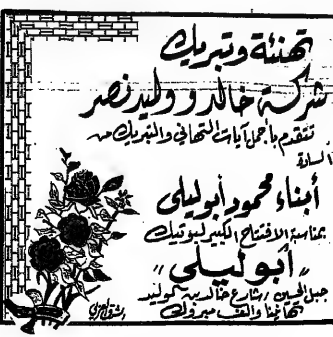 تهنئة وتبريك
شركة خالد و وليد نصر
تتقدم بأجمل آيات التهاني والتبريك من
السادة
أبناء محمود أبو ليلى
بمناسبة الافتتاح الكبير لبوتيك
"أبو ليلى"
جبل الحسين / شارع خالد بن الوليد
تهانينا والف مبروك